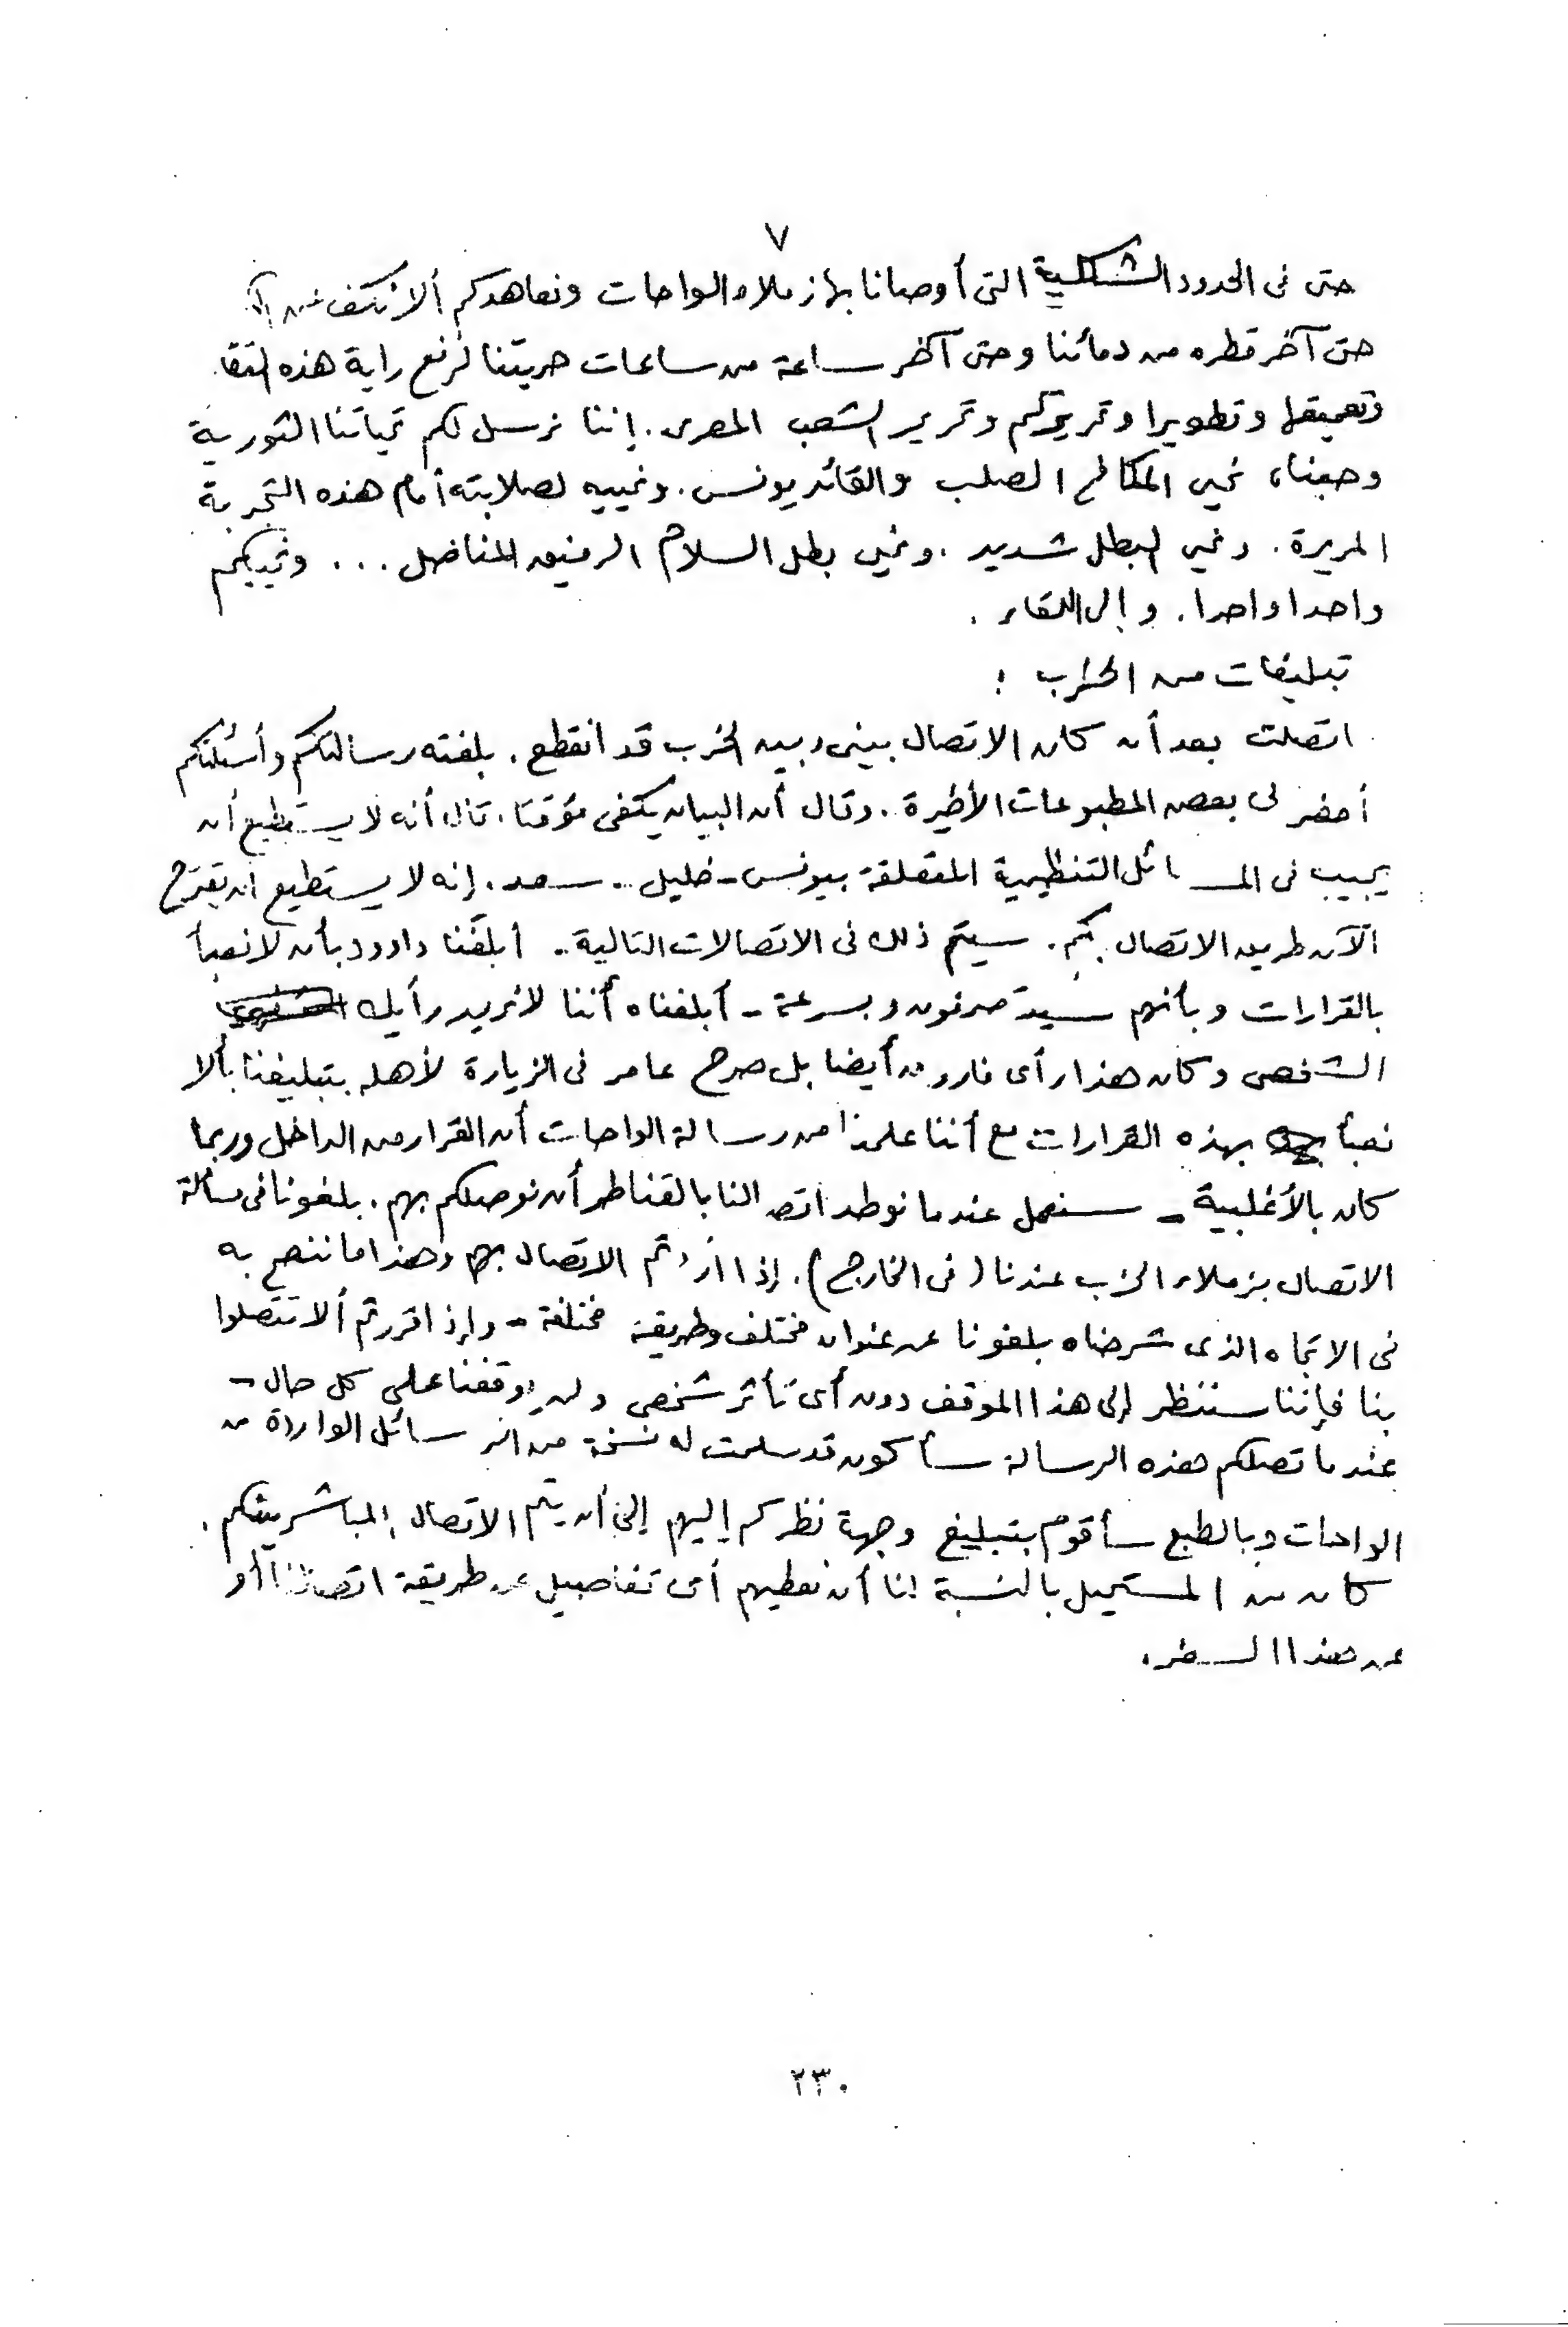 ٧
حتى فى الحدود الشكلية التى أوصانا بها زملاء الواحات ونعاهدكم ألا نكف
حتى آخر قطره من دمائنا وحتى آخر ساعة من ساعات حريتنا لرفع راية هذه
وتعميقها وتطويرا وتحريركم وتحرير الشعب المصرى. إننا نرسل لكم تحياتنا الثورية
نحيى المكافح الصلب والقائد يونس. ونحييه لصلابته أمام هذه التجربة
المريرة. ونحيى البطل شديد. ونحيى بطل السلام الرفيق المناضل... ونحييكم
واحدا واحدا. وإلى اللقاء.
تبليغات من الحزب :
اتصلت بعد أن كان الاتصال بينى وبين الحزب قد انقطع. بلغته رسالتكم وأسئلتكم
أحضر لى بعض المطبوعات الأخيرة. وقال أن البيان يكفى مؤقتا. قال أنه لا يستطيع أن
يجيب فى المسائل التنظيمية المتعلقة بيونس - خليل - سعد. إنه لا يستطيع ان يقترح
الآن طريق الاتصال بكم. سيتم ذلك فى الاتصالات التالية - أبلغنا داوود بأن لا نعبأ
بالقرارات وبأنهم سيتصرفون وبسرعة - أبلغناه أننا لا نريد رأيك
الشخصى وكان هذا رأى فاروق أيضا بل صرح عامر فى الزيارة لأهله بتبليغنا بألا
نعبأ بهذه القرارات مع أننا علمنا من رسالة الواحات أن القرار من الداخل وربما
كان بالأغلبية - سنعمل عندما نوطد اتصالنا بالقناطر أن نوصلكم بهم. بلغونا فى مسألة
الاتصال بزملاء الحزب عندنا (فى الخارج). إذا أردتم الاتصال بهم وهذا ما ننصح به
فى الاتجاه الذى شرحناه بلغونا عن عنوان مختلف وطريقة مختلفة - وإذا قررتم ألا تتصلوا
بنا فإننا سننظر إلى هذا الموقف دون أى تأثر شخصى ولن يوقفنا على كل حال -
عندما تصلكم هذه الرسالة سأكون قد سلمت له نسخة من الرسائل الواردة من
الواحات وبالطبع سأقوم بتبليغ وجهة نظركم إليهم إلى أن يتم الاتصال المباشر بينكم.
كان من المستحيل بالنسبة لنا أن نعطيهم أى تفاصيل عن طريقة اتصالنا أو
عن هذا السفر.
٢٣٠